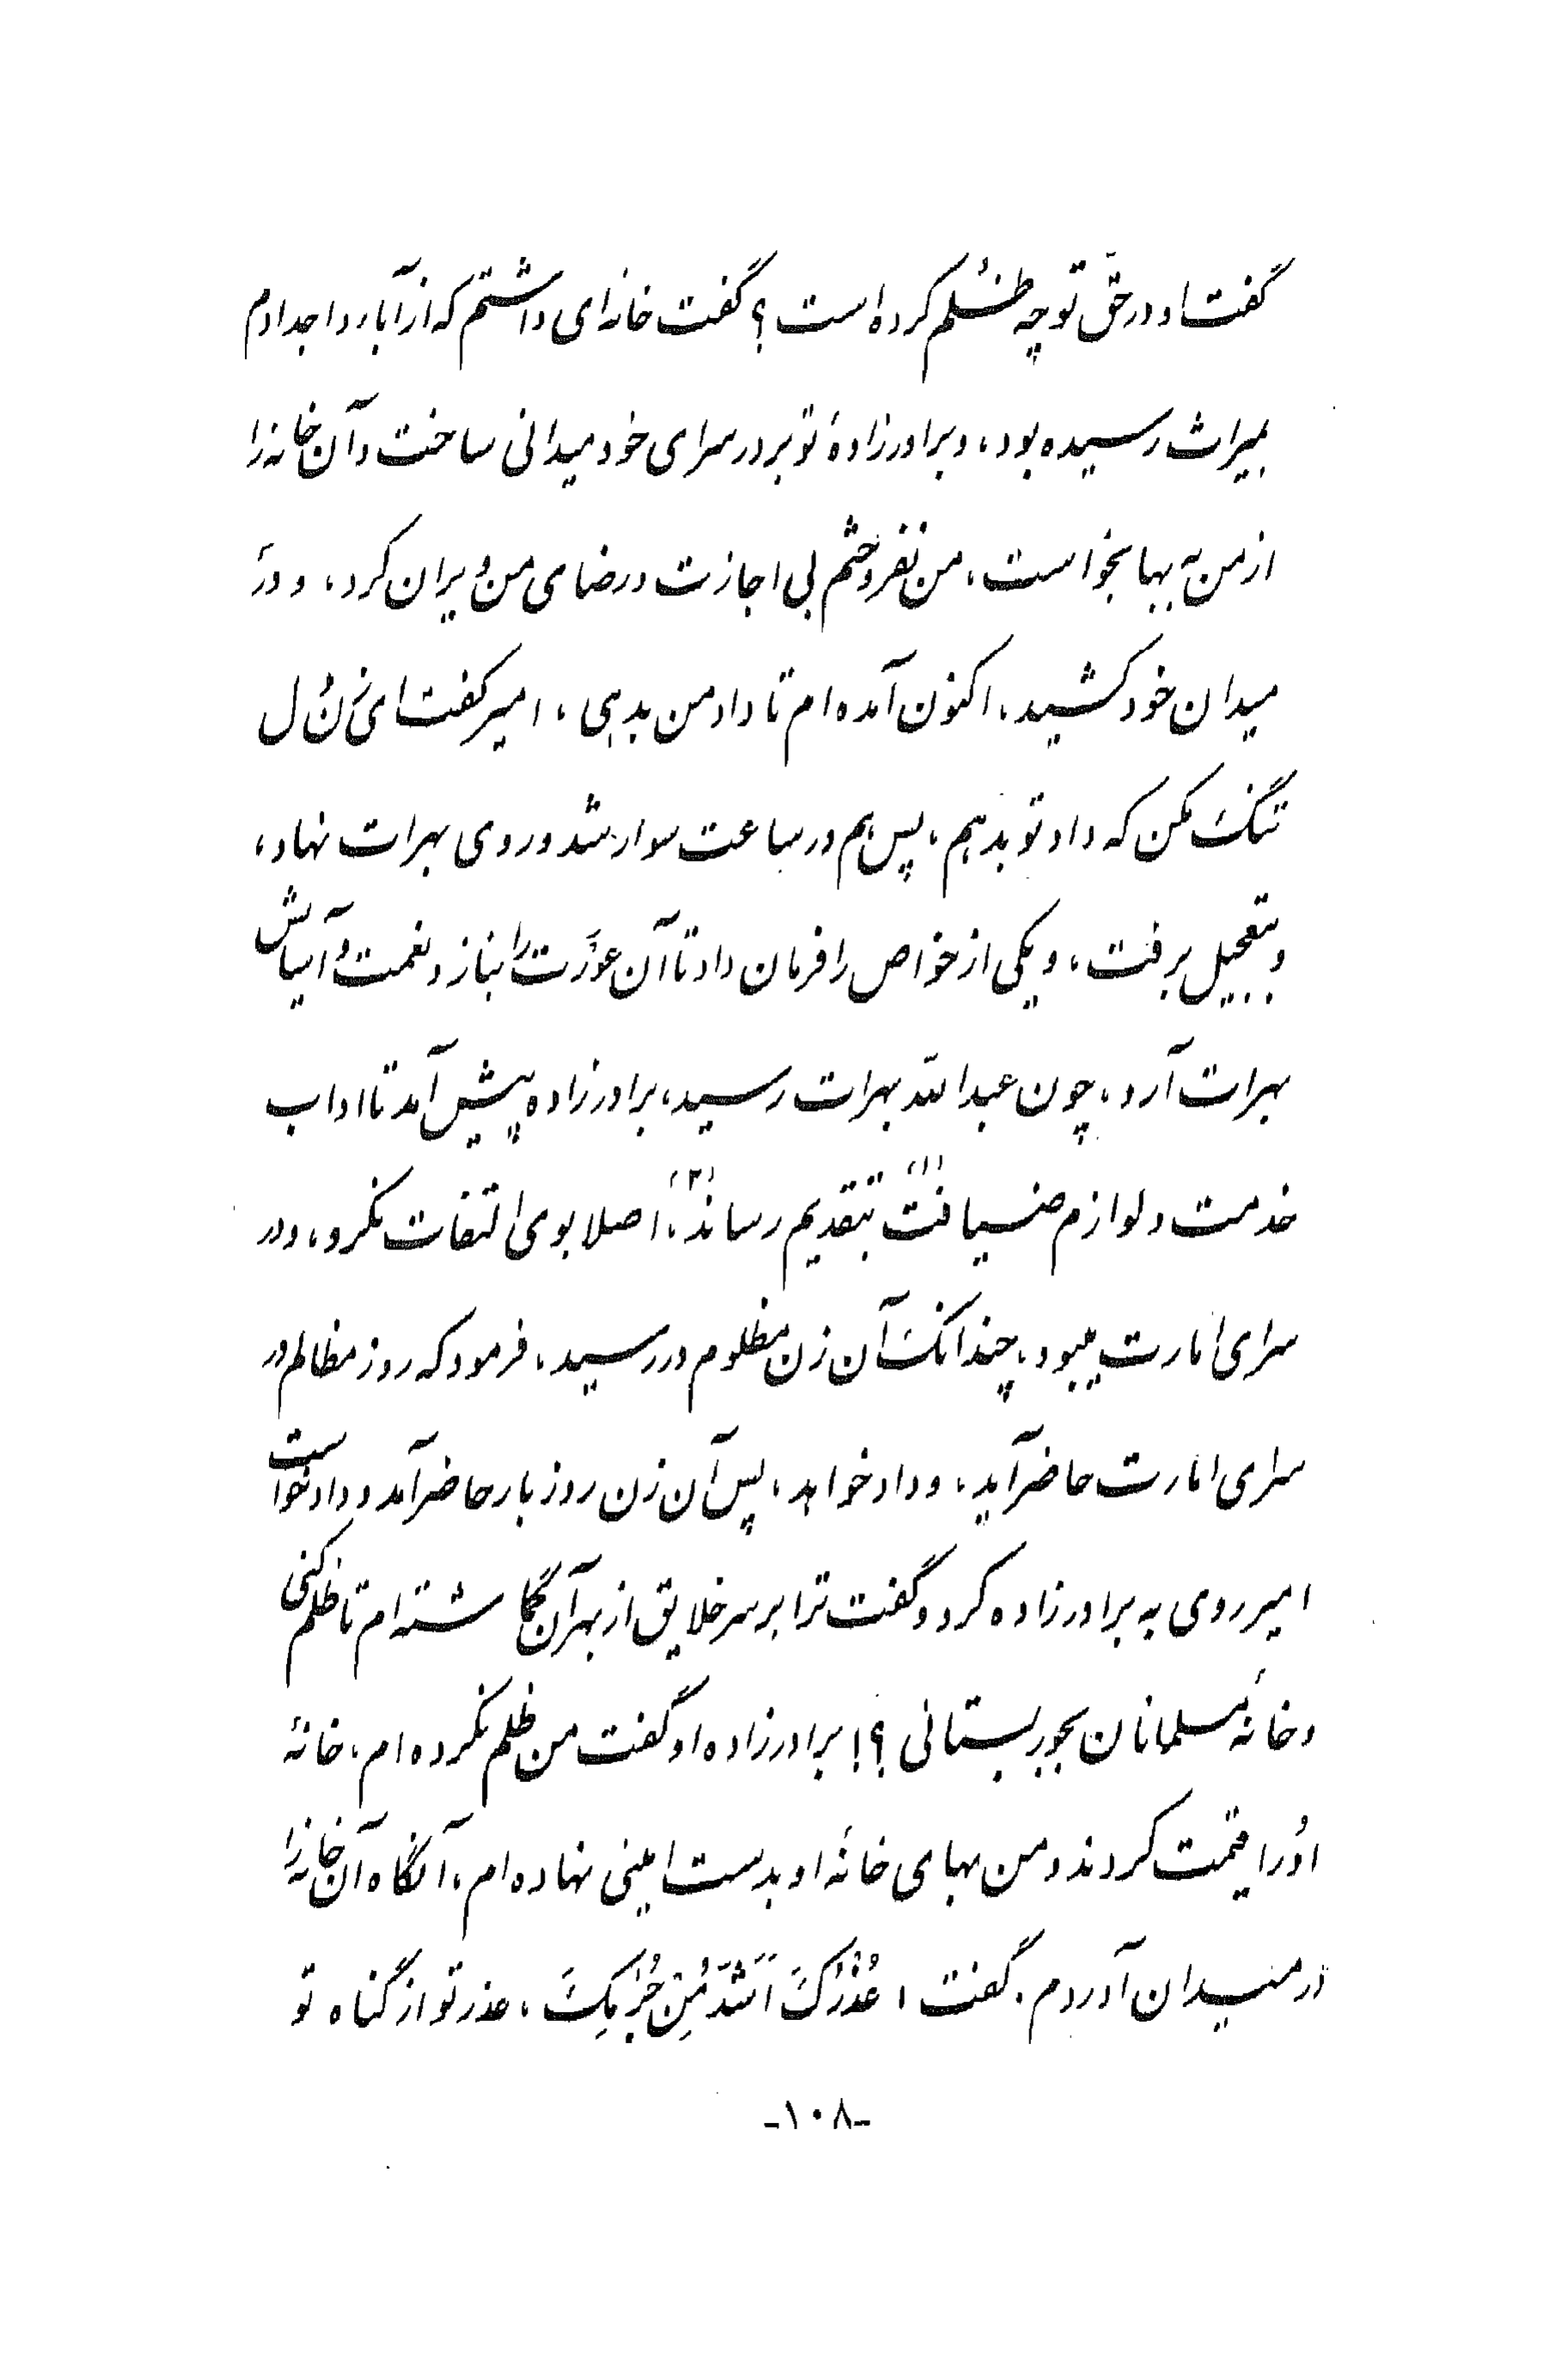 گفت او در حقّ تو چه ظلم کرده است؟ گفت خانه‌ای داشتم که از آباء و اجدادم
بمیراث رسیده بود، و برادرزادهٔ تو بر در سرای خود میدانی ساخت و آن خانه را
از من به بها بخواست، من نفروختم بی اجازت و رضای من ویران کرد، و در
میدان خود کشید، اکنون آمده‌ام تا داد من بدهی، امیر گفت ای زن دل
تنگ مکن که داد تو بدهم، پس هم در ساعت سوار شد و روی بهرات نهاد،
و بتعجیل برفت، و یکی از خواص را فرمان داد تا آن عورت را بناز و نعمت و آسایش
بهرات آرد، چون عبدالله بهرات رسید، برادرزاده پیش آمد تا اداب
خدمت و لوازم ضیافت (۱) بتقدیم رساند (۲)، اصلا بوی التفات نکرد، و در
سرای امارت میبود، چندانک آن زن مظلوم در رسید، فرمود که روز مظالم در
سرای امارت حاضر آید، و داد خواهد، پس آن زن روز بار حاضر آمد و داد خواست
امیر روی به برادرزاده کرد و گفت ترا بر سر خلایق از بهر آن گماشته‌ام تا ظلم کنی
و خانهٔ مسلمانان بجور بستانی؟! برادرزاده او گفت من ظلم نکرده‌ام، خانهٔ
او را قیمت کردند و من بهای خانه او بدست امینی نهاده‌ام، آنگاه آن خانه را
در میدان آوردم. گفت، عُذْرُکَ اَشَدُّ مِنْ جُرْمِکَ، عذر تو از گناه تو
-۱۰۸-